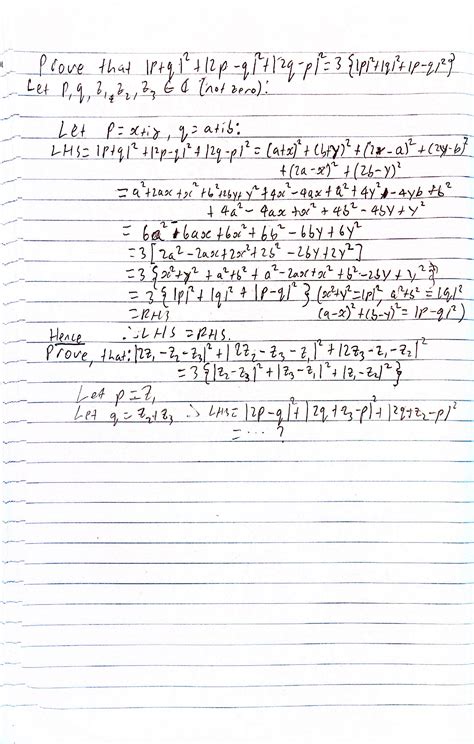 Prove that |p+q|²+|2p-q|²+|2q-p|²=3{|p|²+|q|²+|p-q|²}
Let p,q,z₁,z₂,z₃ ∈ ℂ (not zero):
Let p=x+iy, q=a+ib:
LHS=|p+q|²+|2p-q|²+|2q-p|²=(a+x)²+(b+y)²+(2x-a)²+(2y-b)²
+(2a-x)²+(2b-y)²
=a²+2ax+x²+b²+2by+y²+4x²-4ax+a²+4y²-4yb+b²
+4a²-4ax+x²+4b²-4by+y²
=6a²-6ax+6x²+6b²-6by+6y²
=3[2a²-2ax+2x²+2b²-2by+2y²]
=3{x²+y²+a²+b²+a²-2ax+x²+b²-2by+y²}
=3{|p|²+|q|²+|p-q|²} (x²+y²=|p|², a²+b²=|q|²
=RHS (a-x)²+(b-y)²=|p-q|²)
Hence ∴LHS=RHS.
Prove, that:|2z₁-z₂-z₃|²+|2z₂-z₃-z₁|²+|2z₃-z₁-z₂|²
=3{|z₂-z₃|²+|z₃-z₁|²+|z₁-z₂|²}
Let p=z₁
Let q=z₂+z₃ ∴ LHS=|2p-q|²+|2q+z₃-p|²+|2q+z₂-p|²
=...?